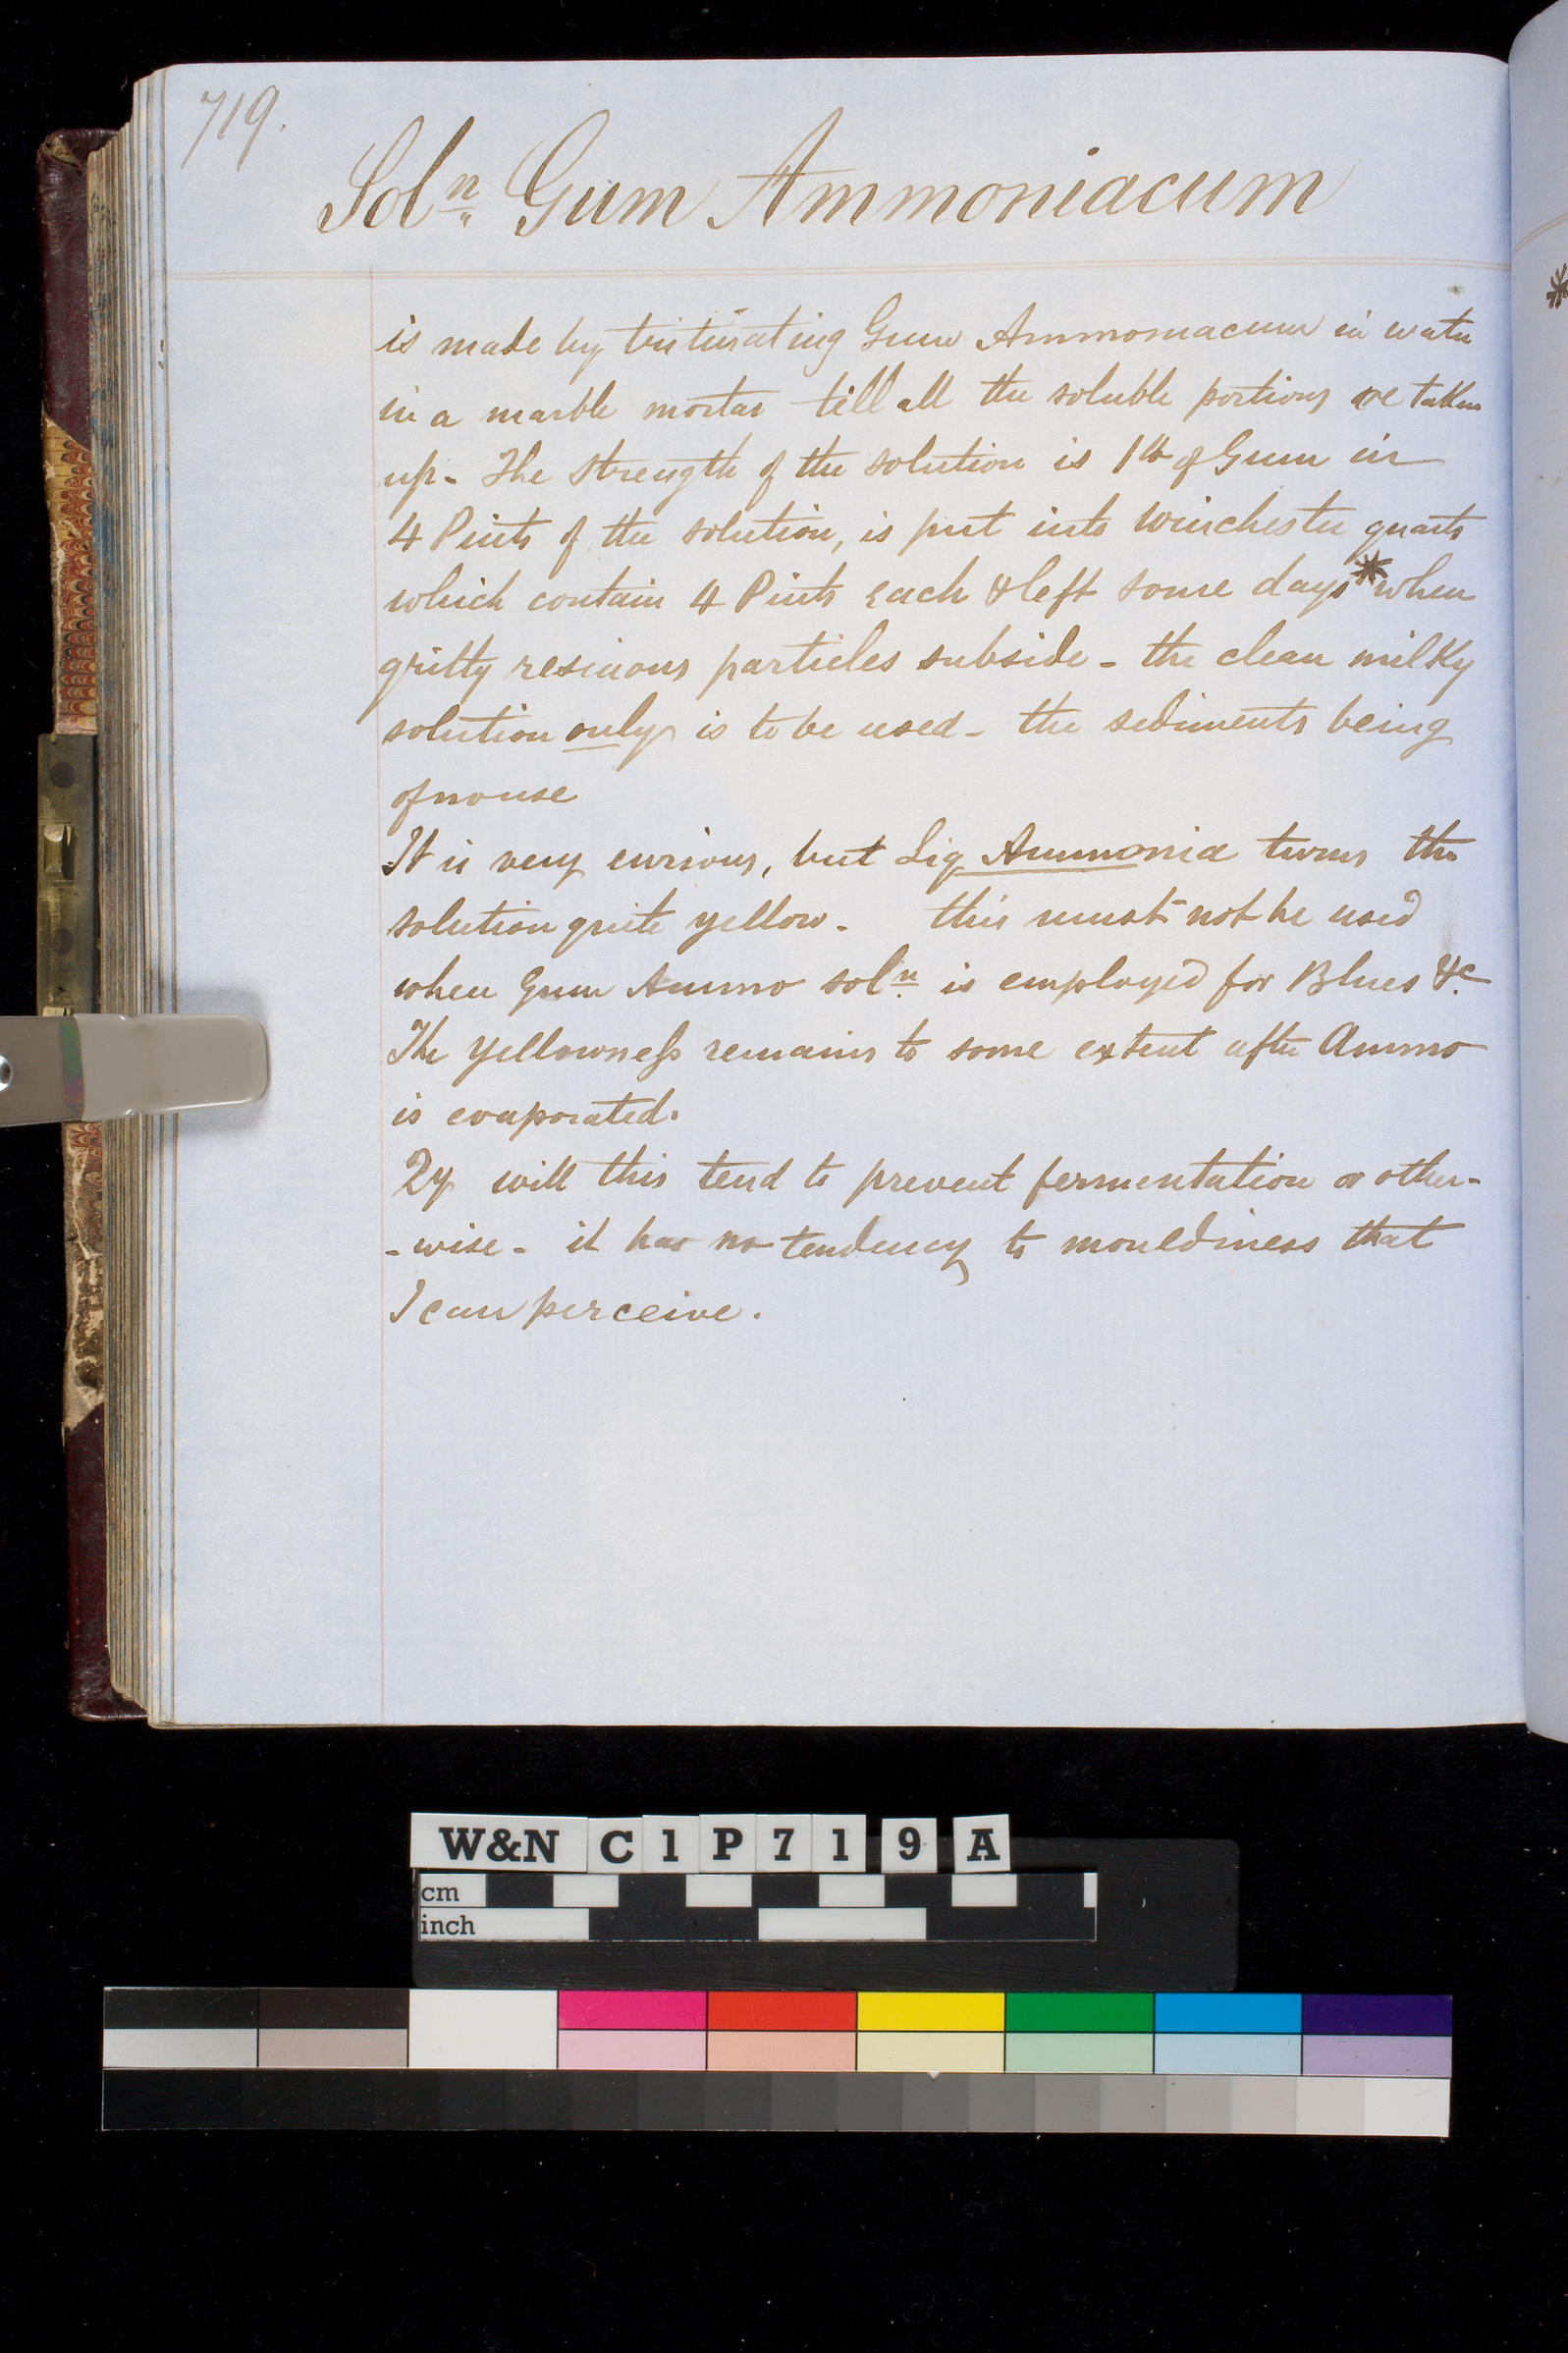 719.
Solⁿ Gum Ammoniacum
is made by triturating Gum Ammoniacum in water
in a marble mortar till all the soluble portions are taken
up - The strength of the solution is 1 lb of Gum in
4 Pints of the solution, is put into Winchester quarts
which contain 4 Pints each & left some days * when
gritty resinous particles subside - the clean milky
solution only is to be used - the sediments being
of no use
It is very curious, but Liq Ammonia turns the
solution quite yellow - this must not be used
when Gum Ammo solⁿ is employed for Blues &c
The yellowness remains to some extent after Ammo
is evaporated.
Qy will this tend to prevent fermentation or other-
-wise - it has no tendency to mouldiness that
I can perceive.
*
W&N C1P719A
cm
inch